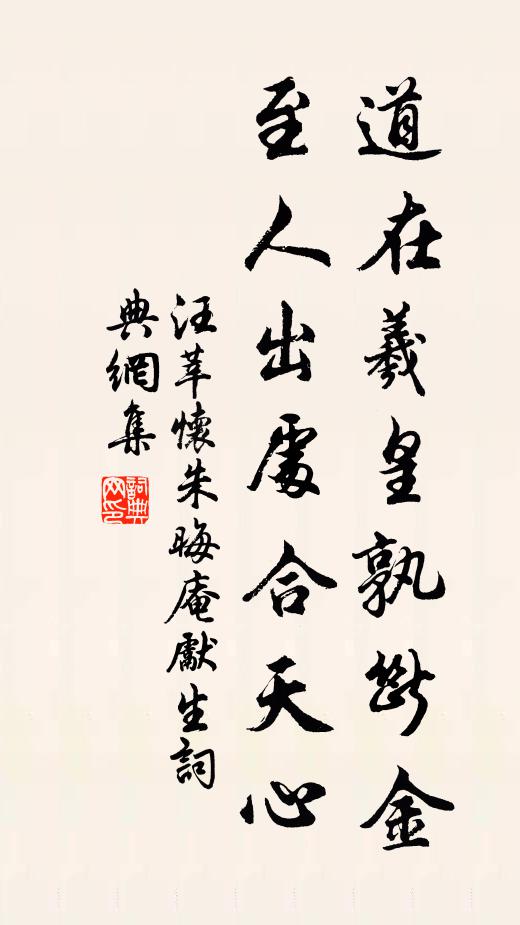 道在羲皇孰斷金
至人出處合天心
汪莘懷朱晦庵獻生詞
典網集
詞典網印